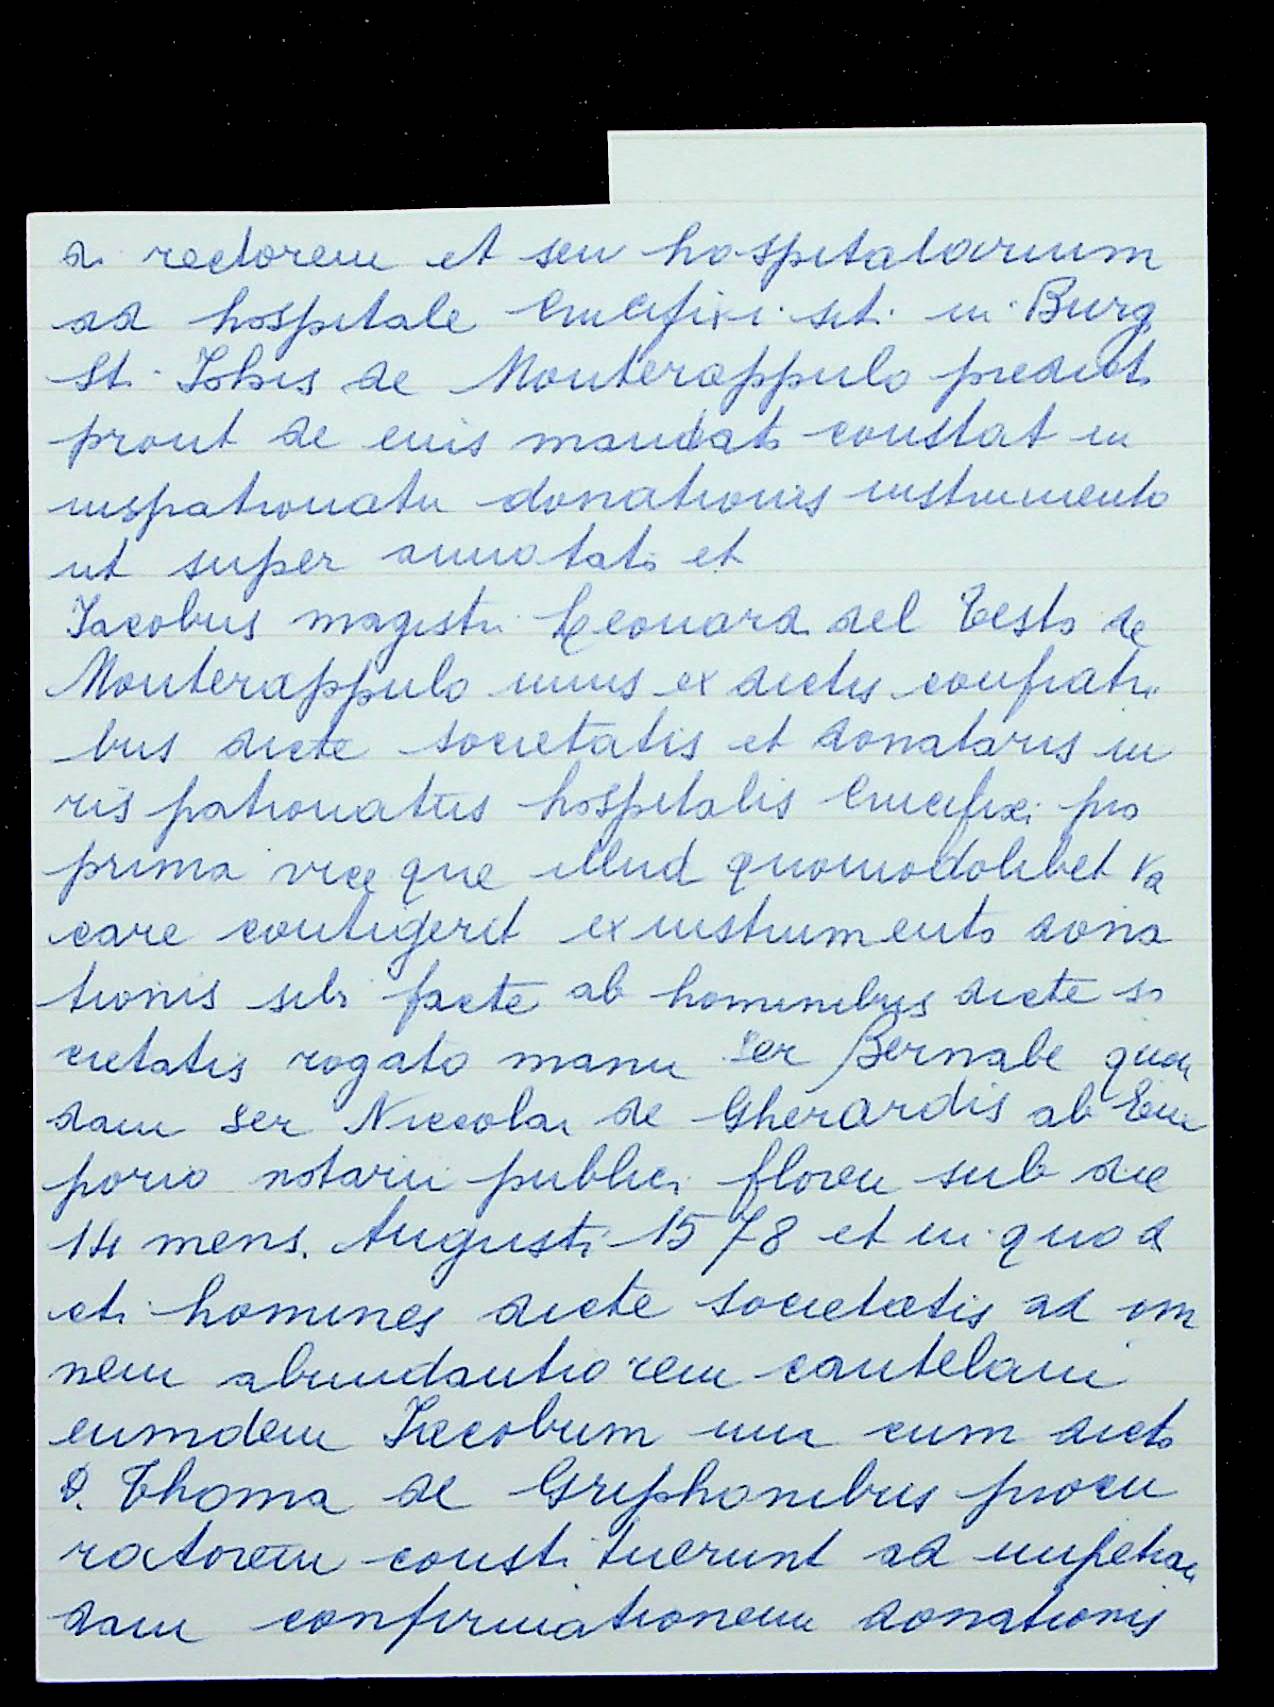 di rectorem et seu hospitalarium
ad hospitale Crucifixi sit. in Burg
St. Johis de Monterappulo predict.
prout de eius mandato constat in
iuspatronatu donationis instrumento
ut super annotato et
Jacobus magistri Leonardi del Testo de
Monterappulo unus ex dictis confratri
bus dicte societatis et donatarius iu
ris patronatus hospitalis Crucifixi pro
prima vice que illud quomodolibet va
care contigerit ex instrumento dona
tionis sibi facte ab hominibus dicte so
cietatis rogato manu ser Bernabe quon
dam ser Niccolai de Gherardis ab Em
porio notarii publici floren sub die
14 mens. Augusti 1578 et in quo d
cti homines dicte societatis ad om
nem abundantiorem cautelam
eumdem Jacobum una cum dicto
D. Thoma de Griphonibus procu
ratorem constituerunt ad impetran
dam confirmationem donationis